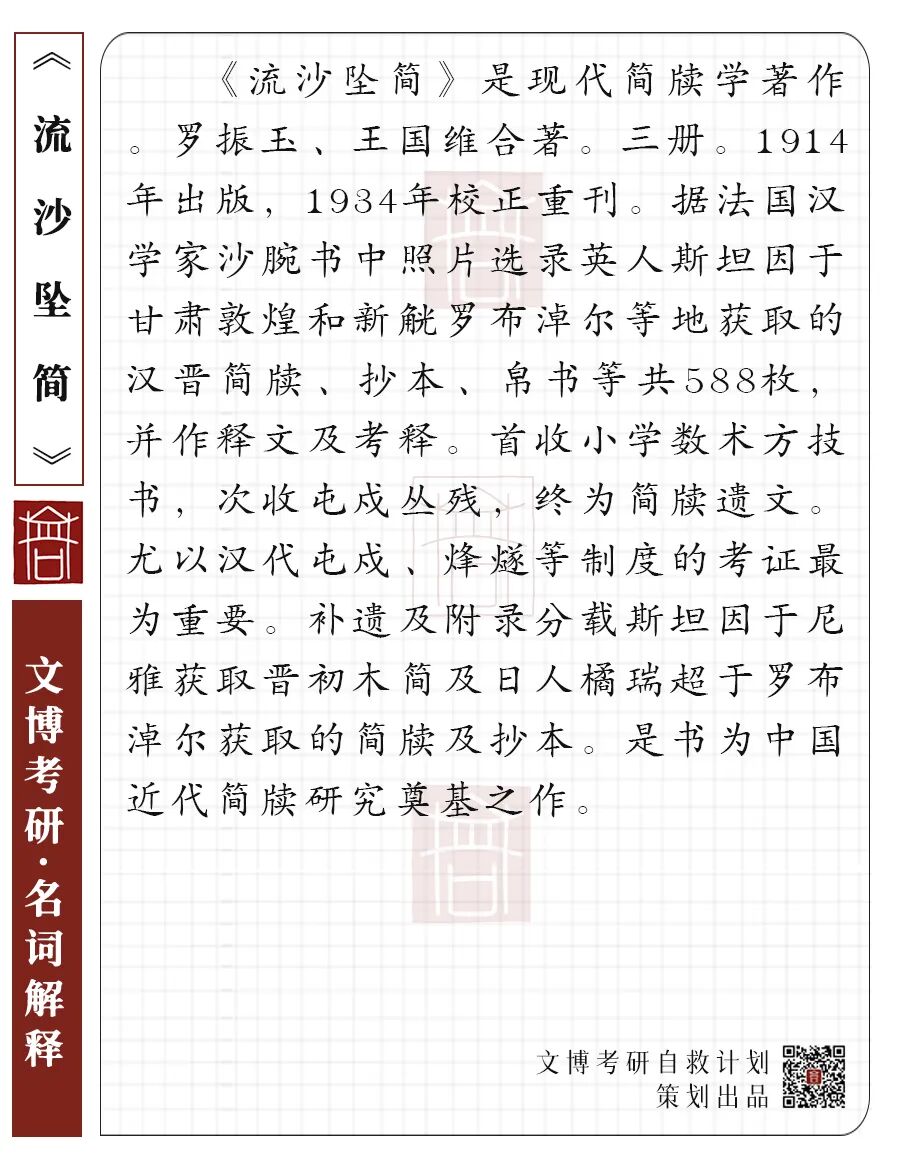 《流沙坠简》
文博考研·名词解释
《流沙坠简》是现代简牍学著作
。罗振玉、王国维合著。三册。1914
年出版，1934年校正重刊。据法国汉
学家沙腕书中照片选录英人斯坦因于
甘肃敦煌和新觥罗布淖尔等地获取的
汉晋简牍、抄本、帛书等共588枚，
并作释文及考释。首收小学数术方技
书，次收屯戍丛残，终为简牍遗文。
尤以汉代屯戍、烽燧等制度的考证最
为重要。补遗及附录分载斯坦因于尼
雅获取晋初木简及日人橘瑞超于罗布
淖尔获取的简牍及抄本。是书为中国
近代简牍研究奠基之作。
文博考研自救计划
策划出品